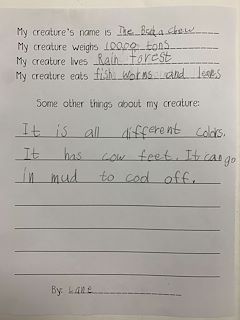 My creature's name is The
My creature weighs 10000 tons
My creature lives Rain forest
My creature eats fish worms and leaves
Some other things about my creature:
It is all different colors.
It has cow feet. It can go
in mud to cool off.
By: Lane